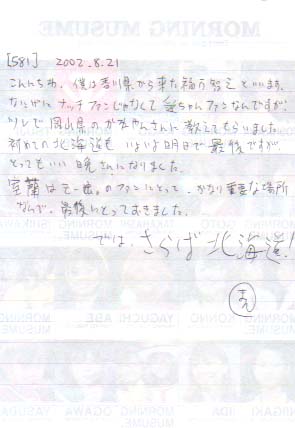 MORNING MUSUME
[581] 2002.8.21
こんちわ、僕は香川県から来た福万智之といいます。
なにげに ナッチファンじゃなくて 愛ちゃんファンなんですが、
ツレで 岡山県の がおやんさんに 教えてもらいました。
初めての 北海道も いよいよ明日で 最後ですが、
とってもいい 晩さんになりました。
室蘭は モー娘。のファンにとって、かなり重要な場所
なんで、最後にとっておきました。
では、さらば北海道!
YAGUCHI ABE
MORNING MUSUME
KONNO
IIDA MORNING OGAWA YASUDA
MUSUME